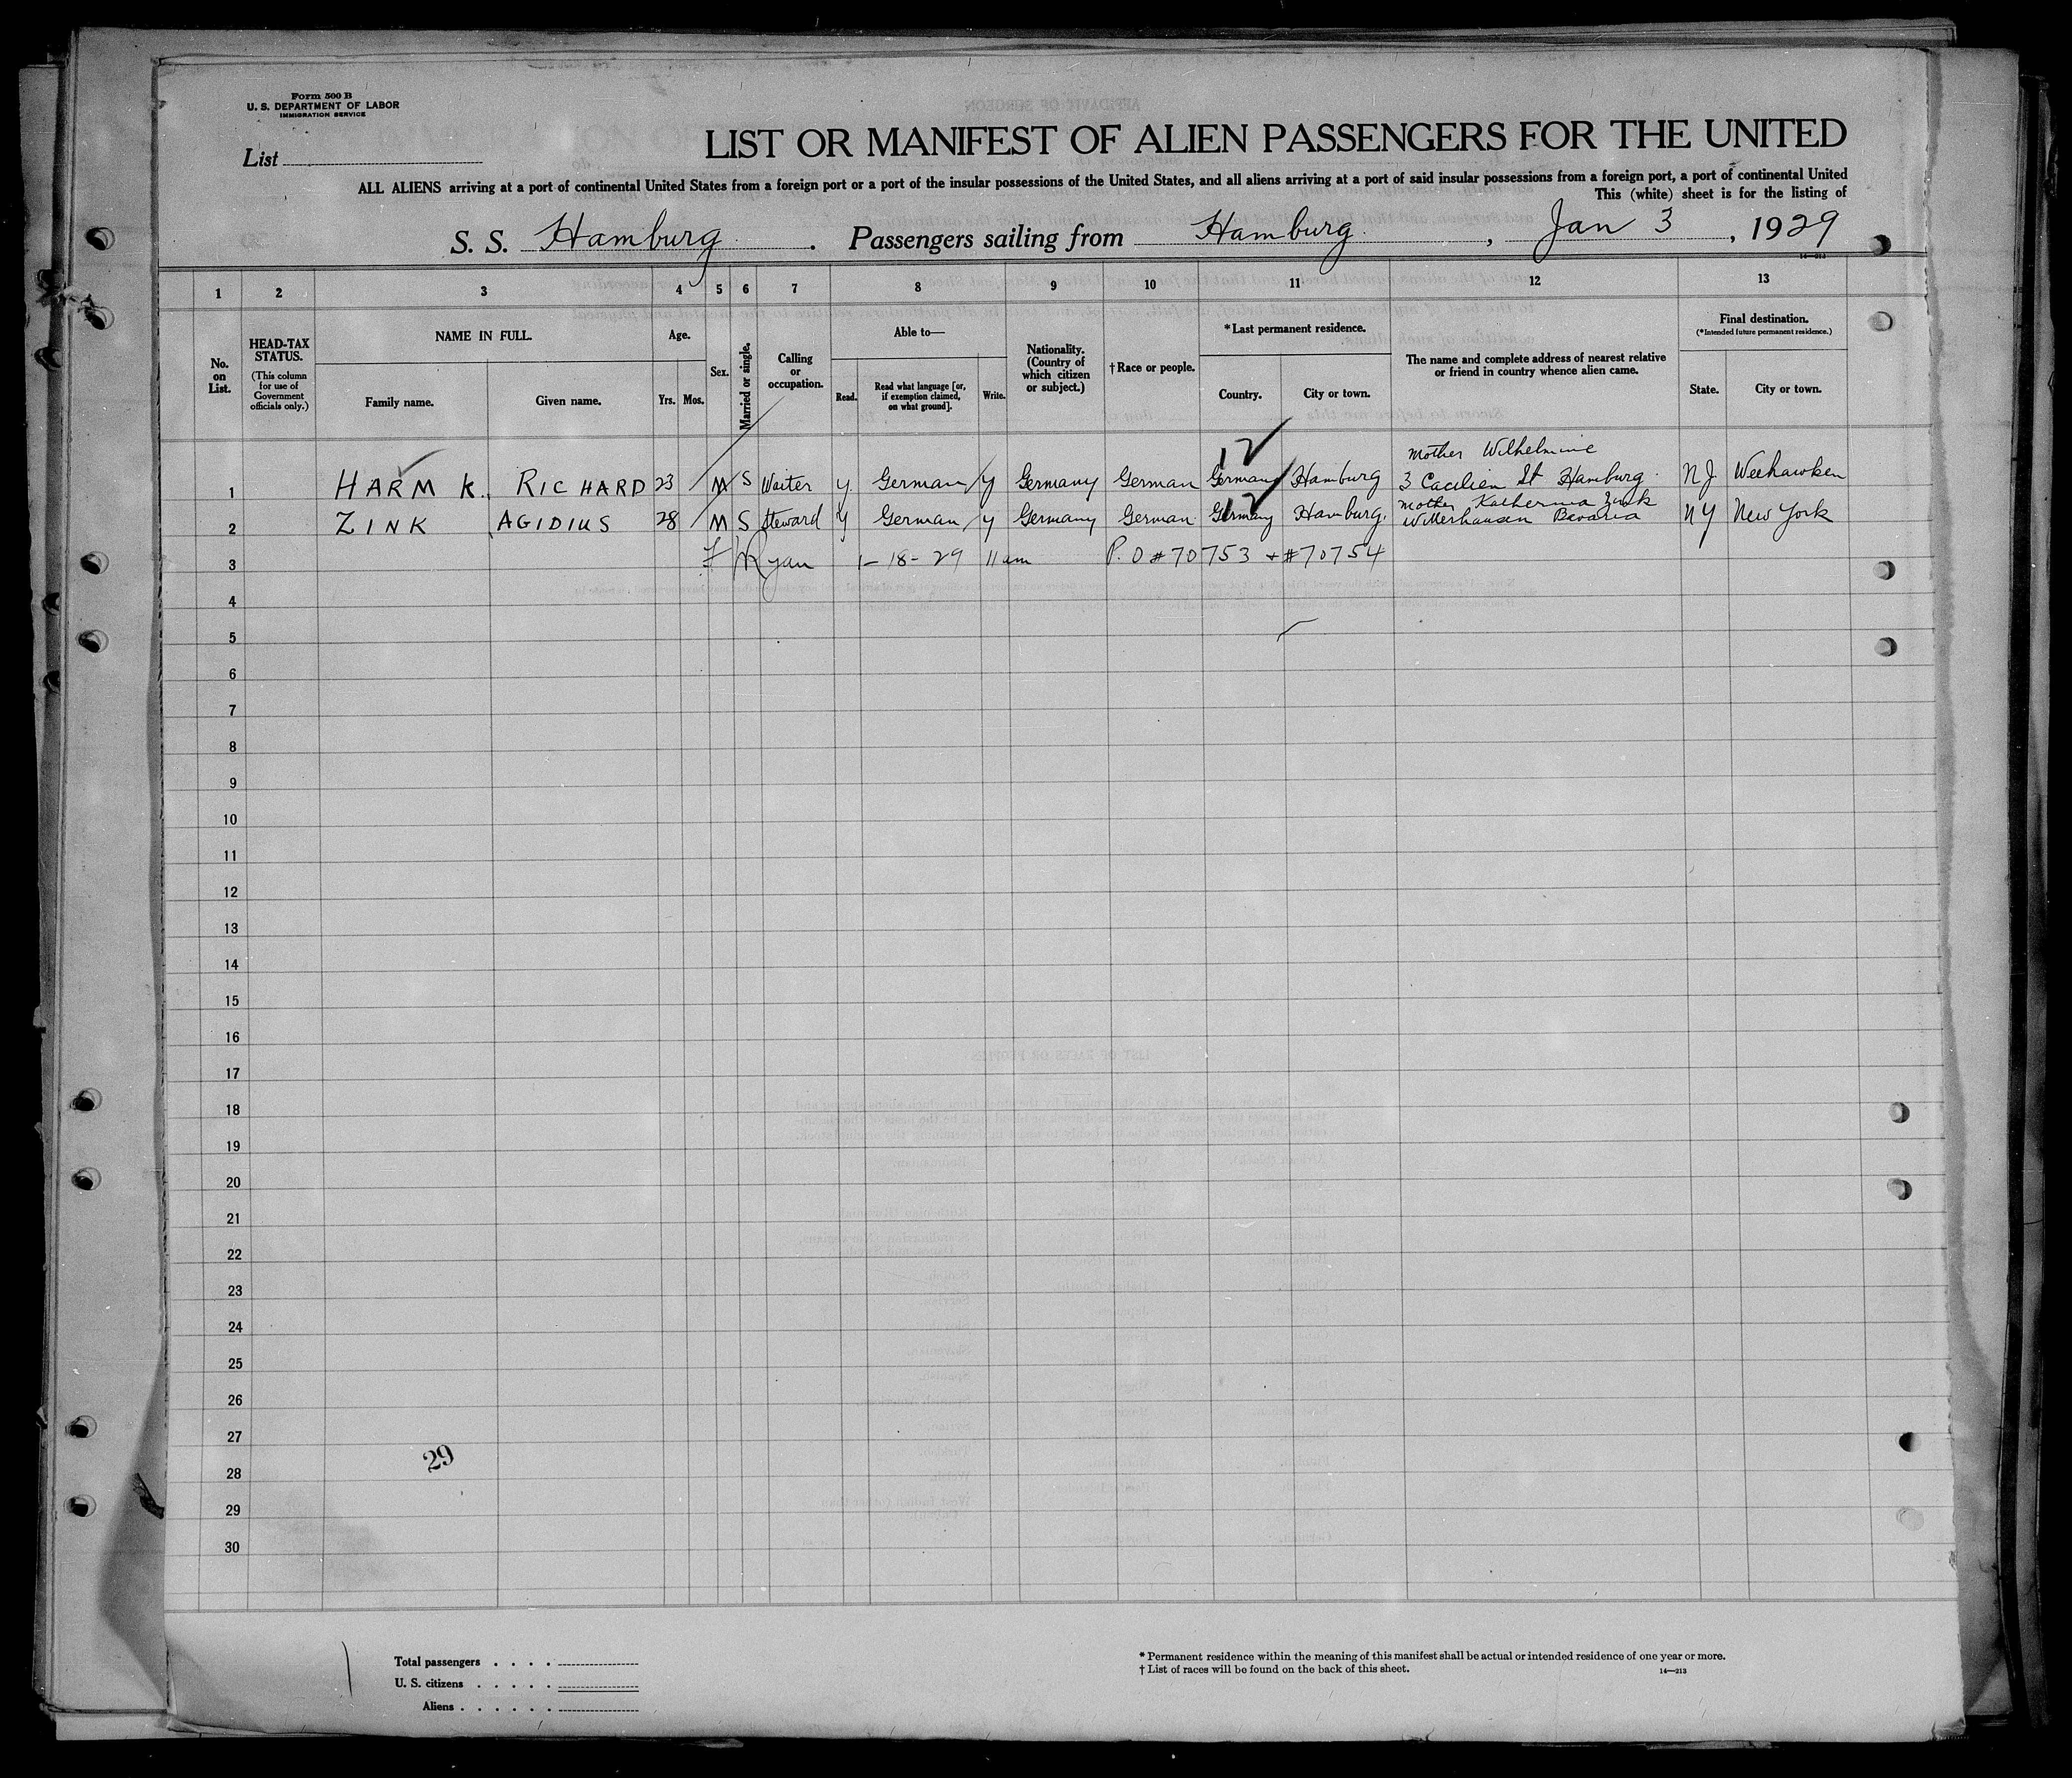 Form 500 B
U. S. DEPARTMENT OF LABOR
IMMIGRATION SERVICE
List
LIST OR MANIFEST OF ALIEN PASSENGERS FOR THE UNITED
ALL ALIENS arriving at a port of continental United States from a foreign port or a port of the insular possessions of the United States, and all aliens arriving at a port of said insular possessions from a foreign port, a port of continental United
This (white) sheet is for the listing of
S. S. Hamburg. Passengers sailing from Hamburg, Jan 3, 1929
14—213
1 2 3 4 5 6 7 8 9 10 11 12 13
No. on List.
HEAD-TAX STATUS.
(This column for use of Government officials only.)
NAME IN FULL.
Family name.
Given name.
Age.
Yrs. Mos.
Sex.
Married or single.
Calling or occupation.
Able to—
Read.
Read what language [or, if exemption claimed, on what ground].
Write.
Nationality. (Country of which citizen or subject.)
† Race or people.
*Last permanent residence.
Country.
City or town.
The name and complete address of nearest relative or friend in country whence alien came.
Final destination.
(*Intended future permanent residence.)
State.
City or town.
12
mother Wilhelmine
1 HARM K. RICHARD 23 M S Waiter y German y Germany German Germany Hamburg 3 Cacilien St Hamburg NJ Weehawken
12
mother Katherina Zink
2 ZINK AGIDIUS 28 M S Steward y German y Germany German Germany Hamburg. Bavaria NY New York
3 Ryan 1-18-29 11 am P.O #70753 + #70754
4
5
6
7
8
9
10
11
12
13
14
15
16
17
18
19
20
21
22
23
24
25
26
27
29
28
29
30
Total passengers . . . .
U. S. citizens . . . . .
Aliens . . . . . .
* Permanent residence within the meaning of this manifest shall be actual or intended residence of one year or more.
† List of races will be found on the back of this sheet.
14—213